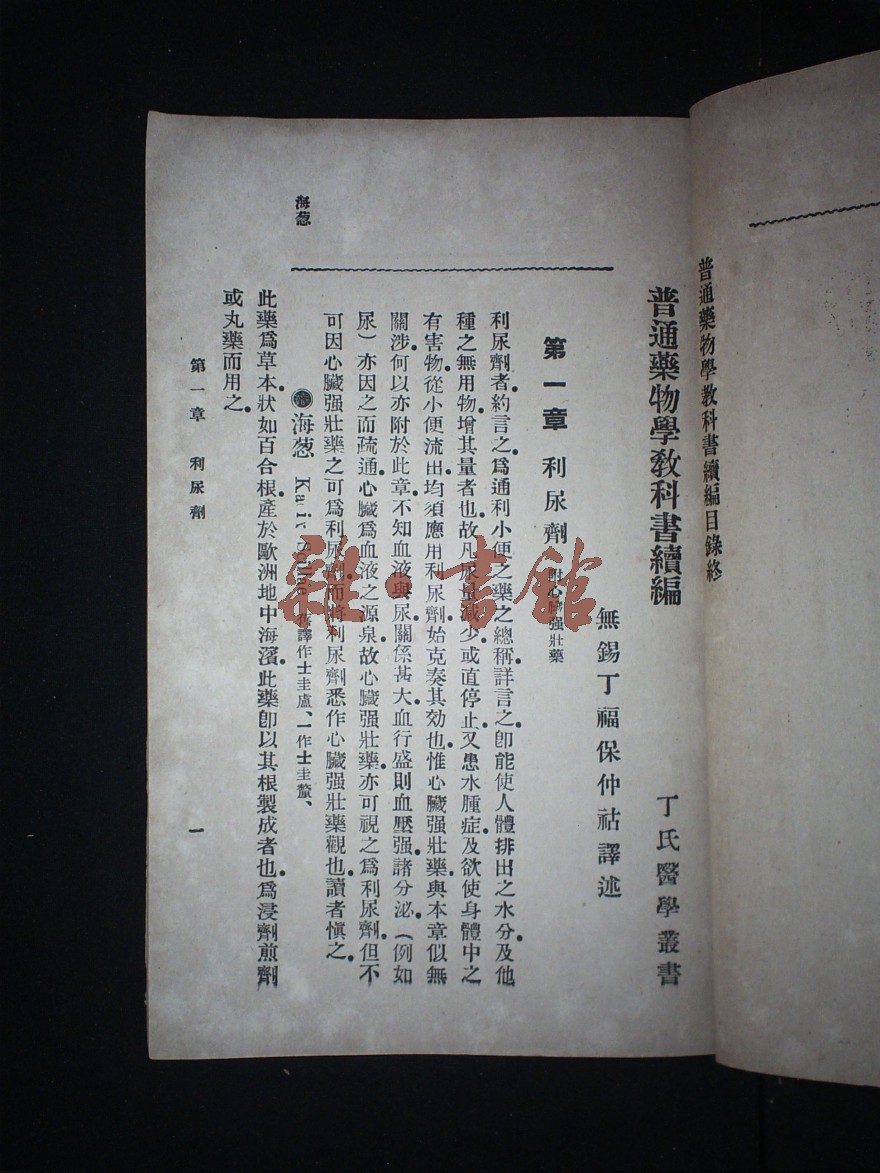 普通藥物學敎科書續編目錄終
普通藥物學敎科書續編
丁氏醫學叢書
無錫丁福保仲祜譯述
第一章 利尿劑 附心臟强壯藥
利尿劑者約言之爲通利小便之藥之總稱詳言之卽能使人體排出之水分及他
種之無用物增其量者也故凡尿量減少或直停止又患水腫症及欲使身體中之
有害物從小便流出均須應用利尿劑始克奏其効也惟心臟强壯藥與本章似無
關涉何以亦附於此章不知血液與尿關係甚大血行盛則血壓强諸分泌(例如
尿)亦因之而疏通心臟爲血液之源泉故心臟强壯藥亦可視之爲利尿劑但不
可因心臟强壯藥之可爲利尿劑而將利尿劑悉作心臟强壯藥觀也讀者愼之
海葱 舊譯作士圭盧、一作士圭螫、
此藥爲草本狀如百合根產於歐洲地中海濱此藥卽以其根製成者也爲浸劑煎劑
或丸藥而用之
海葱
第一章 利尿劑
一
雜·書館